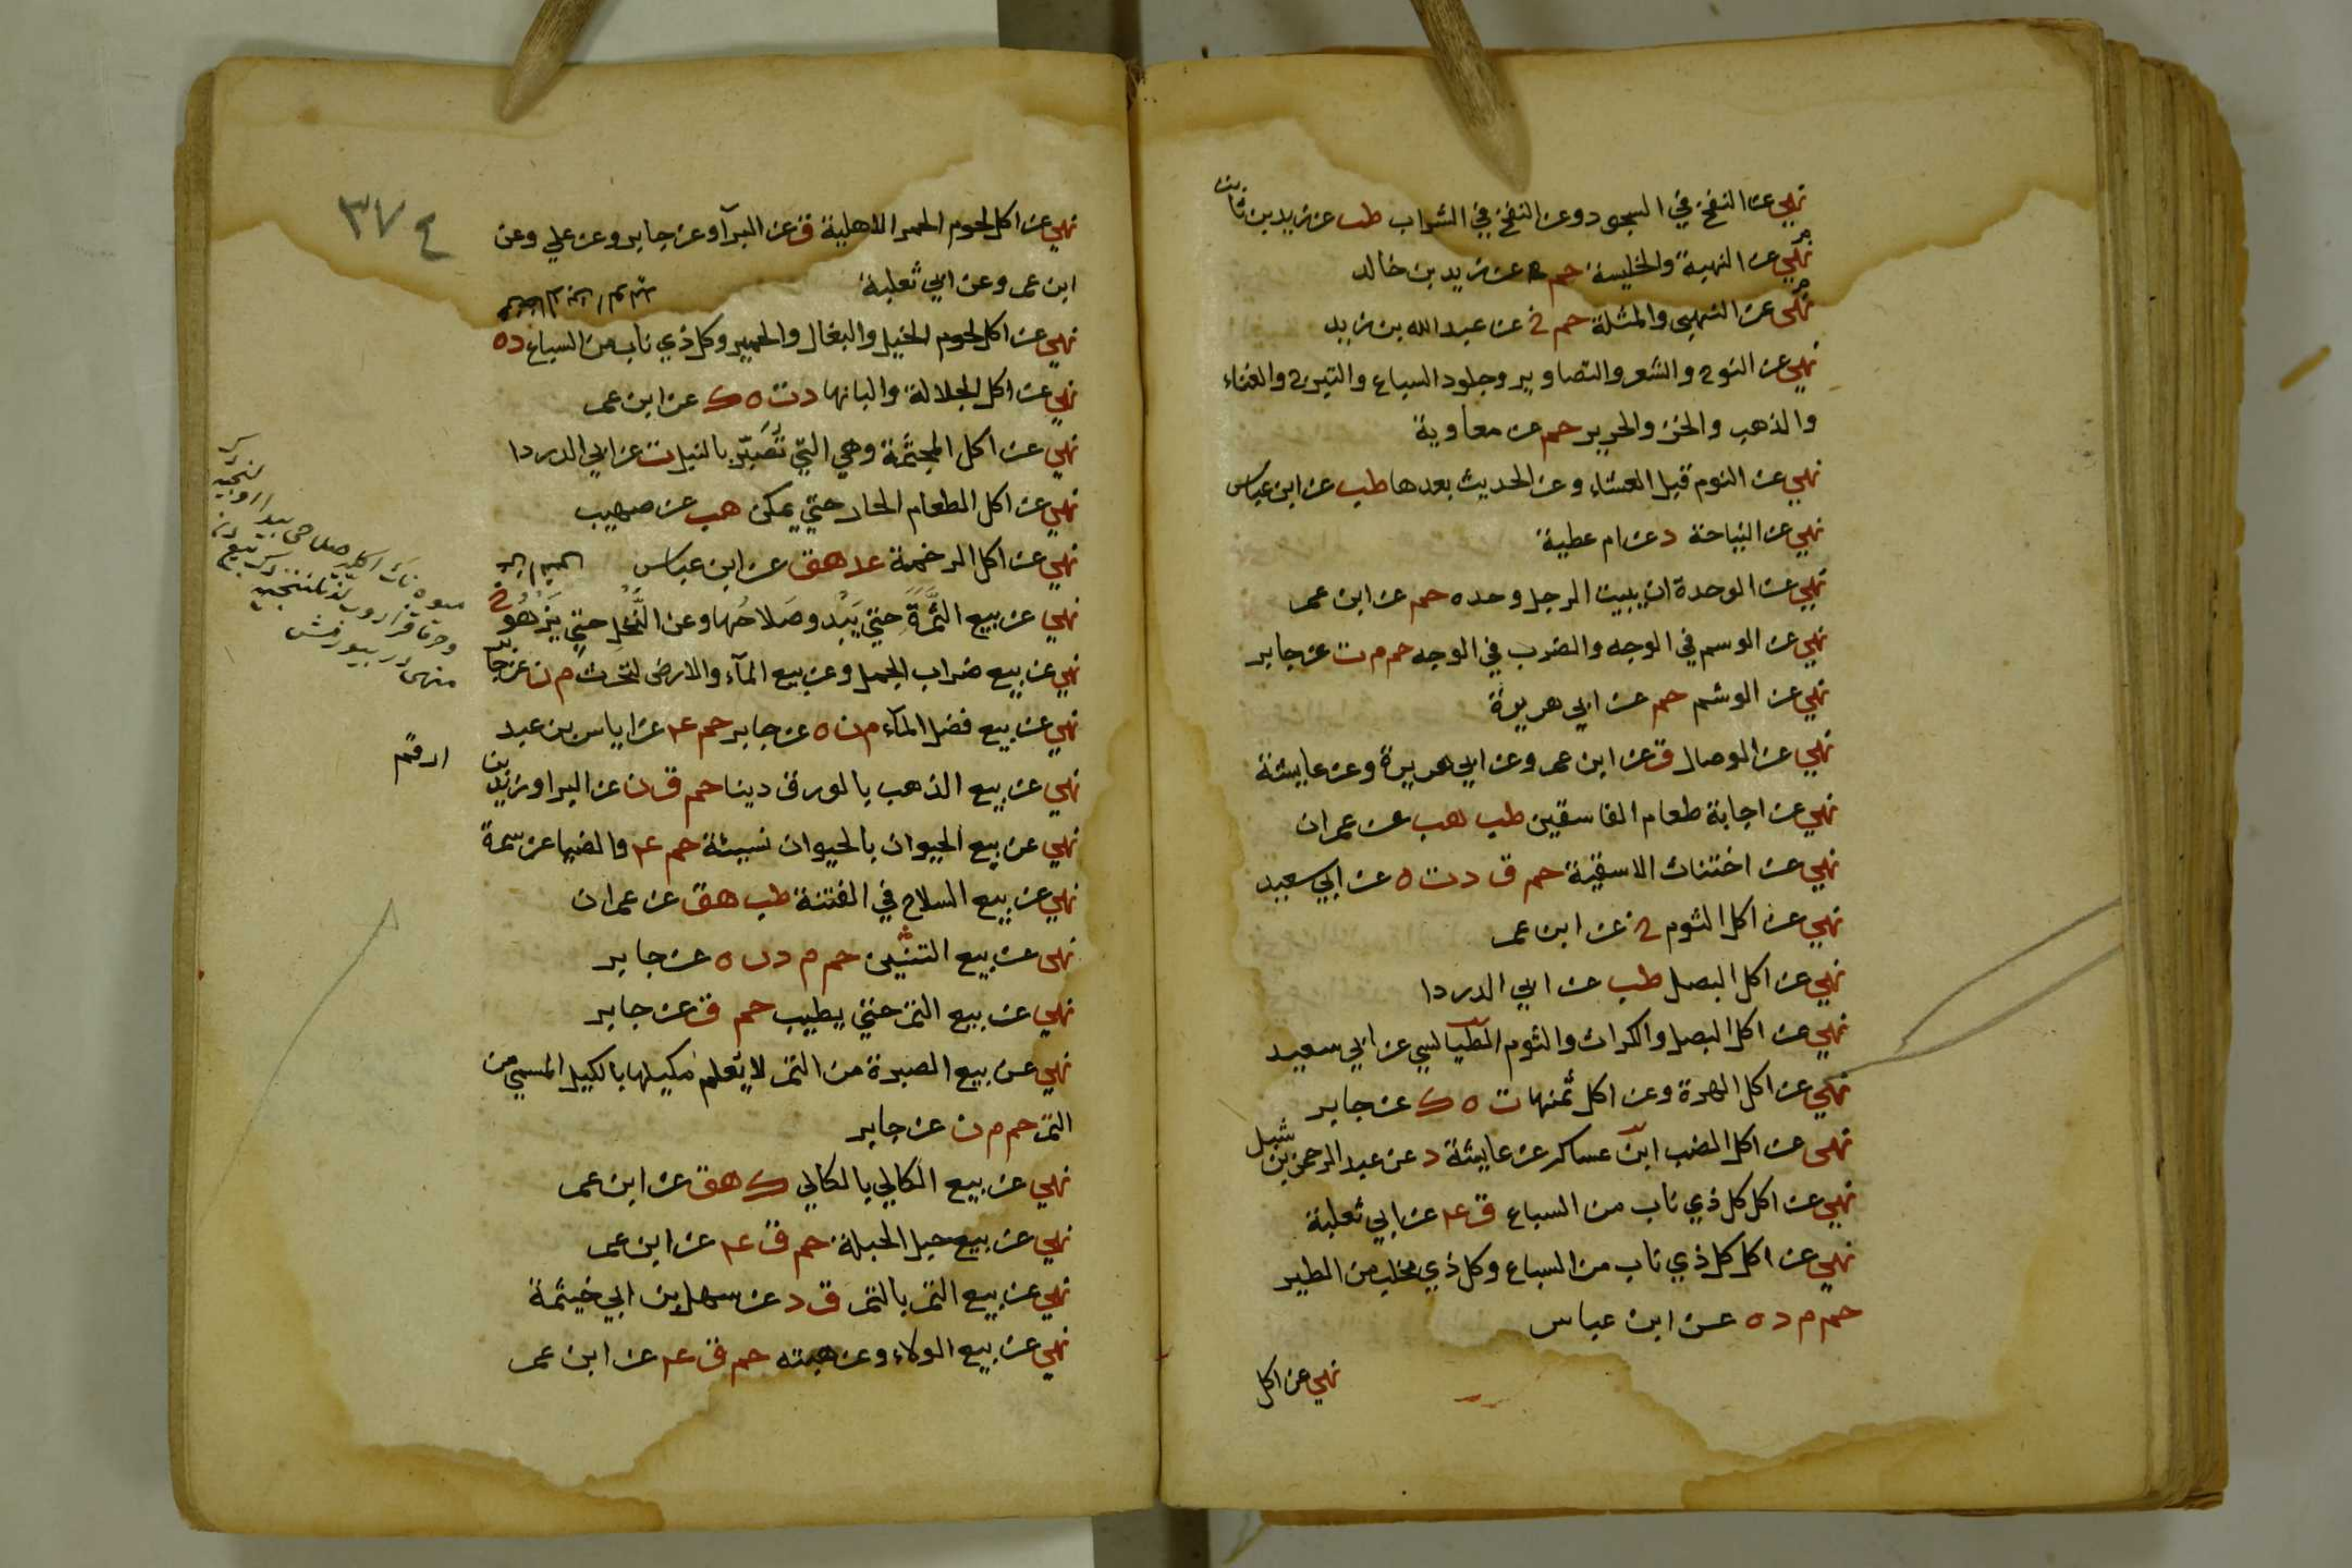 نهي عن النفخ في السجود وعن النفخ في الشراب طب عن زيد بن ثابت
نهي عن النهبة والخليسة حم عن زيد بن خالد
نهى عن النهبى والمثلة حم خ عن عبد الله بن زيد
نهي عن النوح والشعر والتصاوير وجلود السباع والتبرج والغناء
والذهب والخز والحرير حم عن معاوية
نهي عن النوم قبل العشاء وعن الحديث بعدها طب عن ابن عباس
نهي عن النياحة د عن ام عطية
نهي عن الوحدة ان يبيت الرجل وحده حم عن ابن عمر
نهي عن الوسم في الوجه والضرب في الوجه حم م ت عن جابر
نهي عن الوشم حم عن ابي هريرة
نهي عن الوصال ق عن ابن عمر وعن ابي هريرة وعن عايشة
نهي عن اجابة طعام الفاسقين طب هب عن عمران
نهي عن اختناث الاسقية حم ق د ت ه عن ابي سعيد
نهي عن اكل الثوم خ عن ابن عمر
نهي عن اكل البصل طب عن ابي الدردا
نهي عن اكل البصل والكراث والثوم الطيالسي عن ابي سعيد
نهي عن اكل الهرة وعن اكل ثمنها ت ه ك عن جابر
نهى عن اكل الضب ابن عساكر عن عايشة د عن عبد الرحمن بن شبل
نهي عن اكل كل ذي ناب من السباع ق ع عن ابي ثعلبة
نهي عن اكل كل ذي ناب من السباع وكل ذي مخلب من الطير
حم م د ه عن ابن عباس
نهي عن اكل
٣٧٤
نهي عن اكل لحوم الحمر الاهلية ق عن البرآ وعن جابر وعن علي وعن
ابن عمر وعن ابي ثعلبة
نهي عن اكل لحوم الخيل والبغال والحمير وكل ذي ناب من السباع د ه
نهي عن اكل الجلالة والبانها د ت ه ك عن ابن عمر
نهي عن اكل المجثمة وهي التي تصبر بالنبل ت عن ابي الدردا
نهي عن اكل الطعام الحار حتي يمكن هب عن صهيب
نهي عن اكل الرخمة عد هق عن ابن عباس
نهي عن بيع الثمرة حتي يبدو صلاحها وعن النخل حتي يزهو خ
نهي عن بيع ضراب الجمل وعن بيع المآء والارض لتحرث م ن عن جابر
نهي عن بيع فضل المآء م ن ه عن جابر حم ع عن اياس بن عبد
نهي عن بيع الذهب بالورق دينا حم ق ن عن البرا وزيد بن
ارقم
نهي عن بيع الحيوان بالحيوان نسيئة حم ع والضيا عن سمرة
نهي عن بيع السلاح في الفتنة طب هق عن عمران
نهى عن بيع السنين حم م د ن ه عن جابر
نهي عن بيع الثمر حتي يطيب حم ق عن جابر
نهي عن بيع الصبرة من التمر لا يعلم مكيلها بالكيل المسمي من
التمر حم م ن عن جابر
نهي عن بيع الكالي بالكالي ك هق عن ابن عمر
نهي عن بيع حبل الحبلة حم ق ع عن ابن عمر
نهي عن بيع الثمر بالتمر ق د عن سهل بن ابي خيثمة
نهي عن بيع الولاء وعن هبته حم ق ع عن ابن عمر